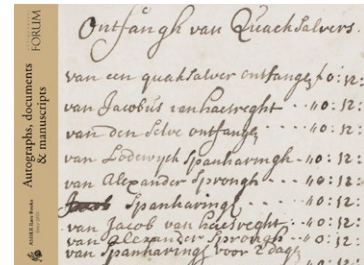 FORUM
Autographs, documents
& manuscripts
ASHER Rare Books
Ontfangh van Quacksalvers.
van een quaksalver ontfange f 0:12:
van Jacobus van haesreght - - "0:12:
van den selve ontfange - - - "0:12:
van Lodewyck Spanharingh - "0:12:
van Alexander Sprongh - - "0:12:
Spanharingh - - "0:12:
van Jacob van haesreght - - "0:12:
van Alexander Sprongh - - "0:12:
van Spanharingh voor 2 dage